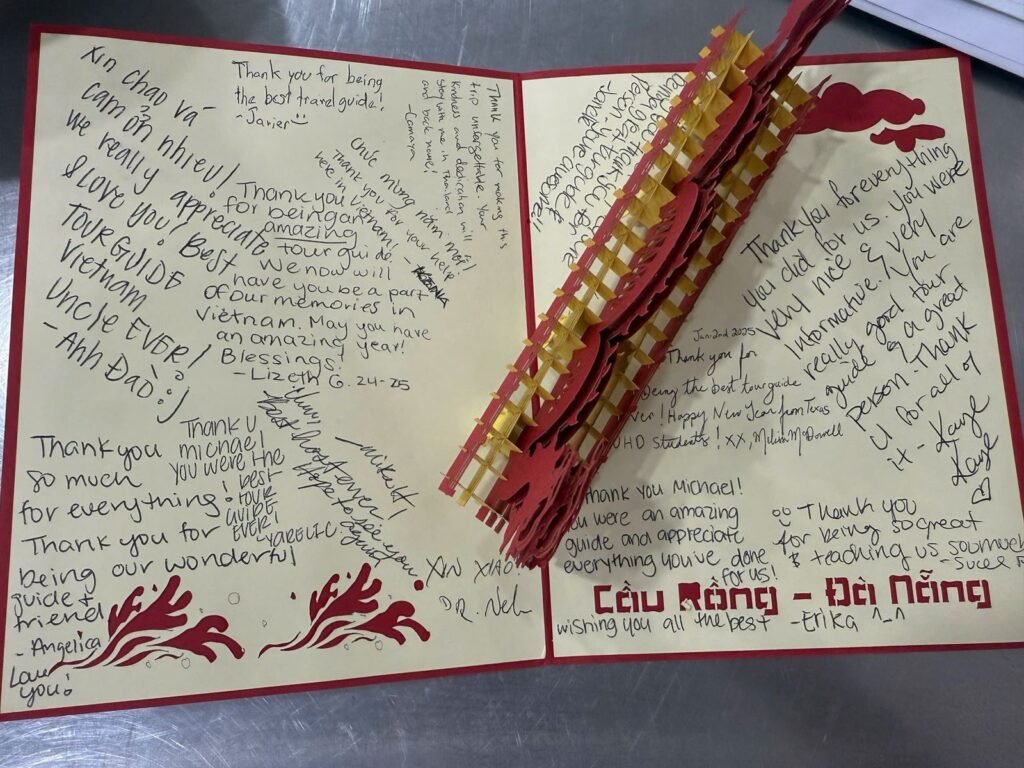 Xin chao và
cảm ơn nhiều!
we really appreciate
& love you! Best
TOUR GUIDE
Vietnam
Uncle EVER!
- Anh Đào :)
Thank you for being
the best travel guide!
- Javier
Thank you for making this
trip unforgettable. Your
kindness and dedication will
stay with me in Thailand
and back home!
Chúc mừng năm mới!
Thank you for your help
here in Vietnam!
Thank you
for being an
amazing
tour guide.
We now will
have you be a part
of our memories in
Vietnam. May you have
an amazing year!
Blessings!
- Lizeth G. 24-25
Best Host ever
Hope to see you
again
Thank U
michael
you were the
best
TOUR
GUIDE
EVER!
- YARELI C.
Thank you
so much
for everything!
Thank you for
being our wonderful
guide +
friend
- Angelica
Love
you!
XIN XIAO!
DR. Neh
Thank you for everything
you did for us. You were
very nice & very
Informative. You are
really good tour
guide & a great
person. Thank
U for all of
it - Kaye
Kaye
Jan. 2nd 2025
Thank you for
being the best tour guide
ever! Happy New Year from Texas
UHD students! XX, McDowell
Thank you Michael!
You were an amazing
guide and appreciate
everything you've done
for us!
wishing you all the best - Erika ^_^
Thank you
for being so great
& teaching us soo much
Cầu Rồng - Đà Nẵng